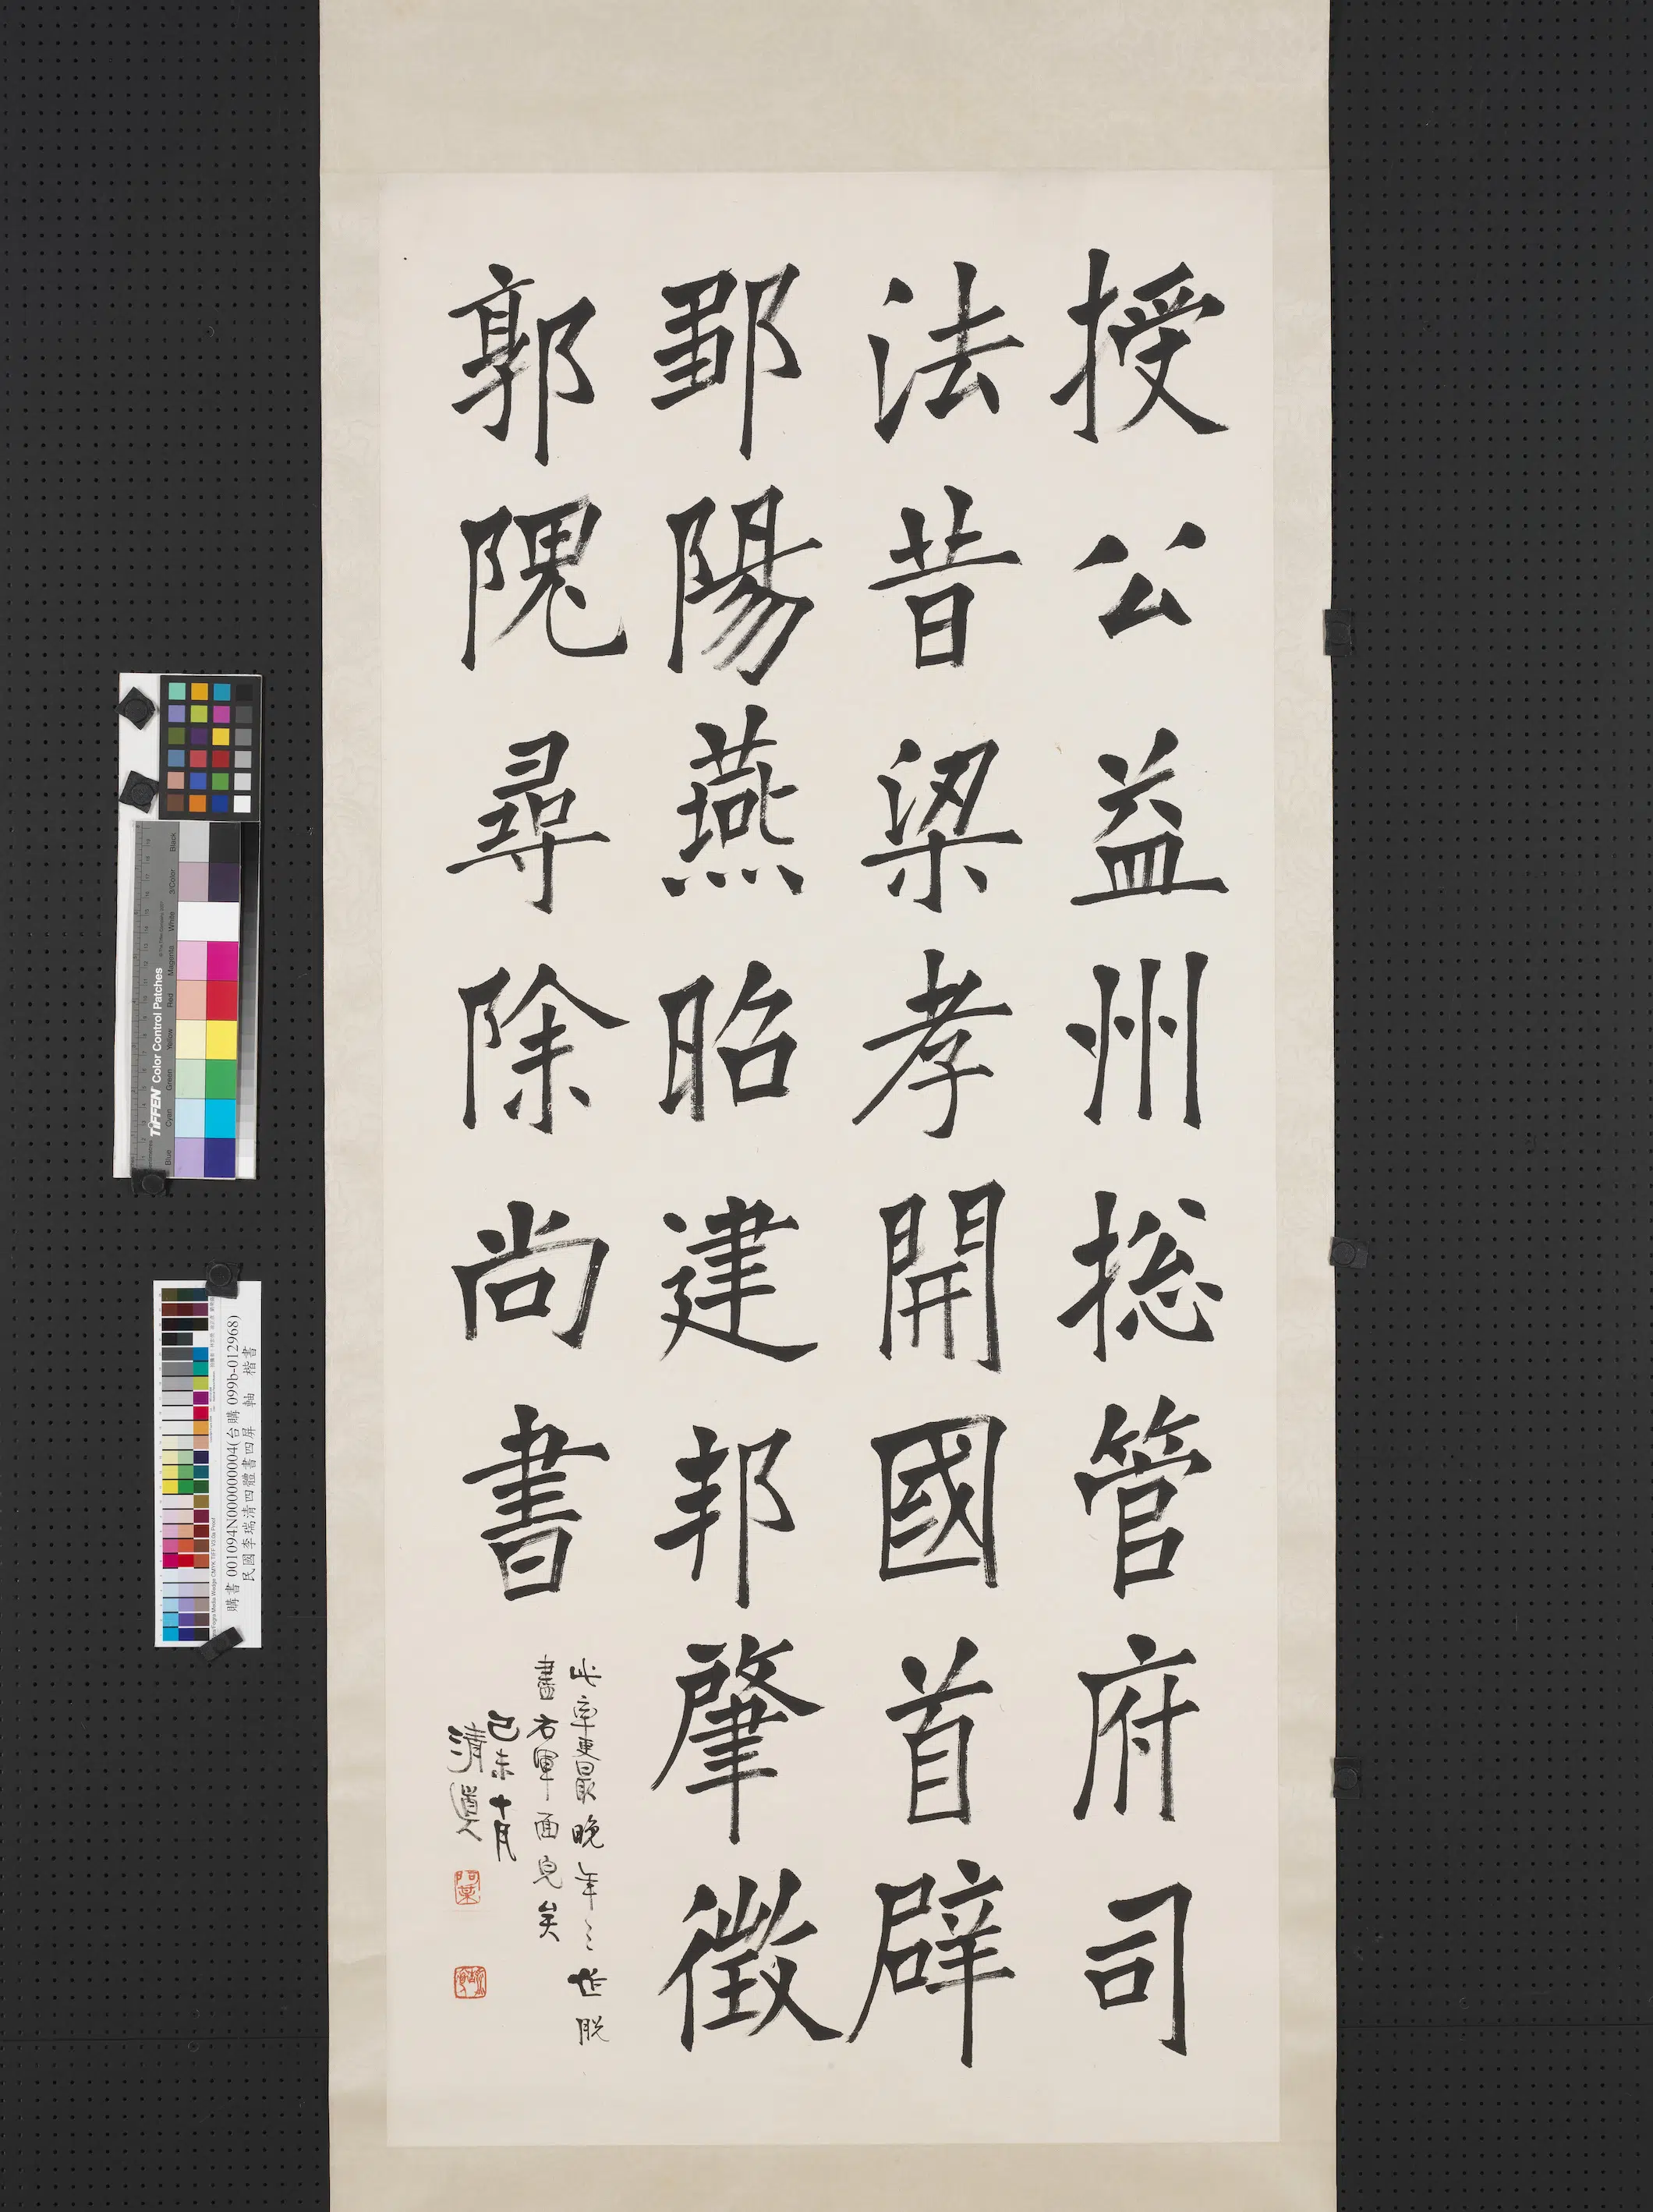 授公益州捴管府司
法昔梁孝開國首辟
鄒陽燕昭建邦肇徵
郭隗尋除尚書
率更最晚年
脫
書右軍面皃矣
己未十月
清道人
購書 001094N000000004(台購 099b-012968)
民國李瑞清四體書四屏 軸 楷書
TIFFEN Color Control Patches
Blue Cyan Green Yellow Red Magenta White 3/Color Black